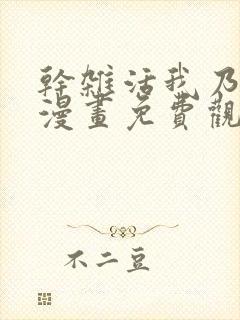 幹雜活我乃
漫畫免費觀
不二豆